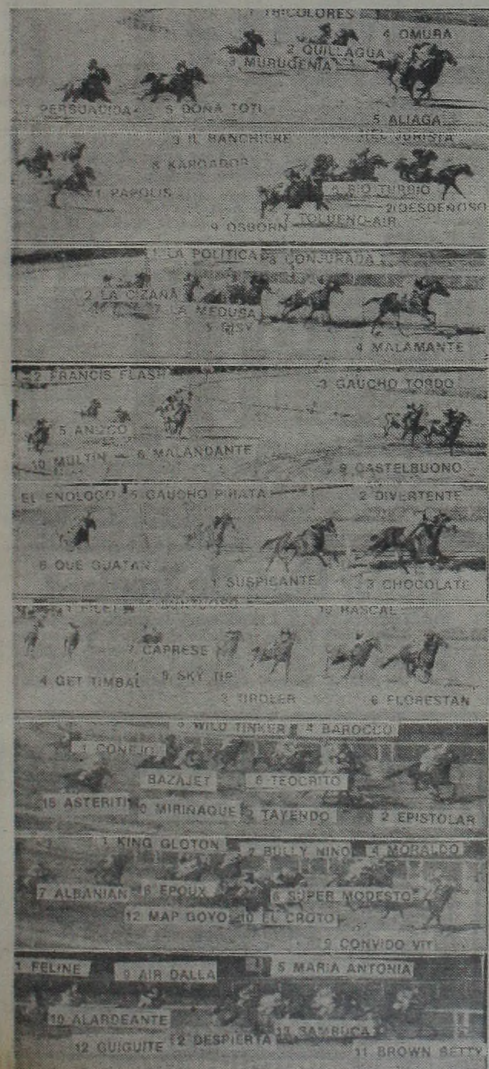 TRICOLORES
4 OMURA
2 QUILLAGUA
3 MURUGENIA
7 PERSUADIDA 6 DOÑA TOTI
5 ALIAGA
3 IL BANCHIERE
EL JURISTA
8 KARGADOR
6 RIO TURBIO
1 PAPOLIS
2 DESDEÑOSO
7 TOLUENO-AIR
9 OSBORN
1 LA POLITICA 3 CONJURADA
2 LA CIZAÑA
LA MEDUSA
5 BISY
4 MALAMANTE
2 FRANCIS FLASH
3 GAUCHO TORDO
5
10 MULTIN 6 MALANDANTE
9 CASTELBUONO
EL ENOLOGO 5 GAUCHO PIRATA 2 DIVERTENTE
6 QUE GUATAN
1 SUSPICANTE 3 CHOCOLATE
10 RASCAL
7 CAPRESE
4 GET TIMBAL 9 SKY TIP
3 TIRDLER 6 FLORESTAN
WILD TINKER BAROCCO
CONEJO
BAZAJET 6 TEOCRITO
MIRIÑAQUE TAYENDO 2 EPISTOLAR
1 KING GLOTON BULLY NINO 4 MORALDO
7 ALBANIAN EPOUX SUPER MODESTO
12 MAP GOYO 10 EL CROTO
9 CONVIDO VIT
1 FELINE 9 AIR DALLA 5 MARIA ANTONIA
10 ALARDEANTE
2 DESPIERTA 13 SAMBUCA
12 GUIGUITE
11 BROWN BETTY